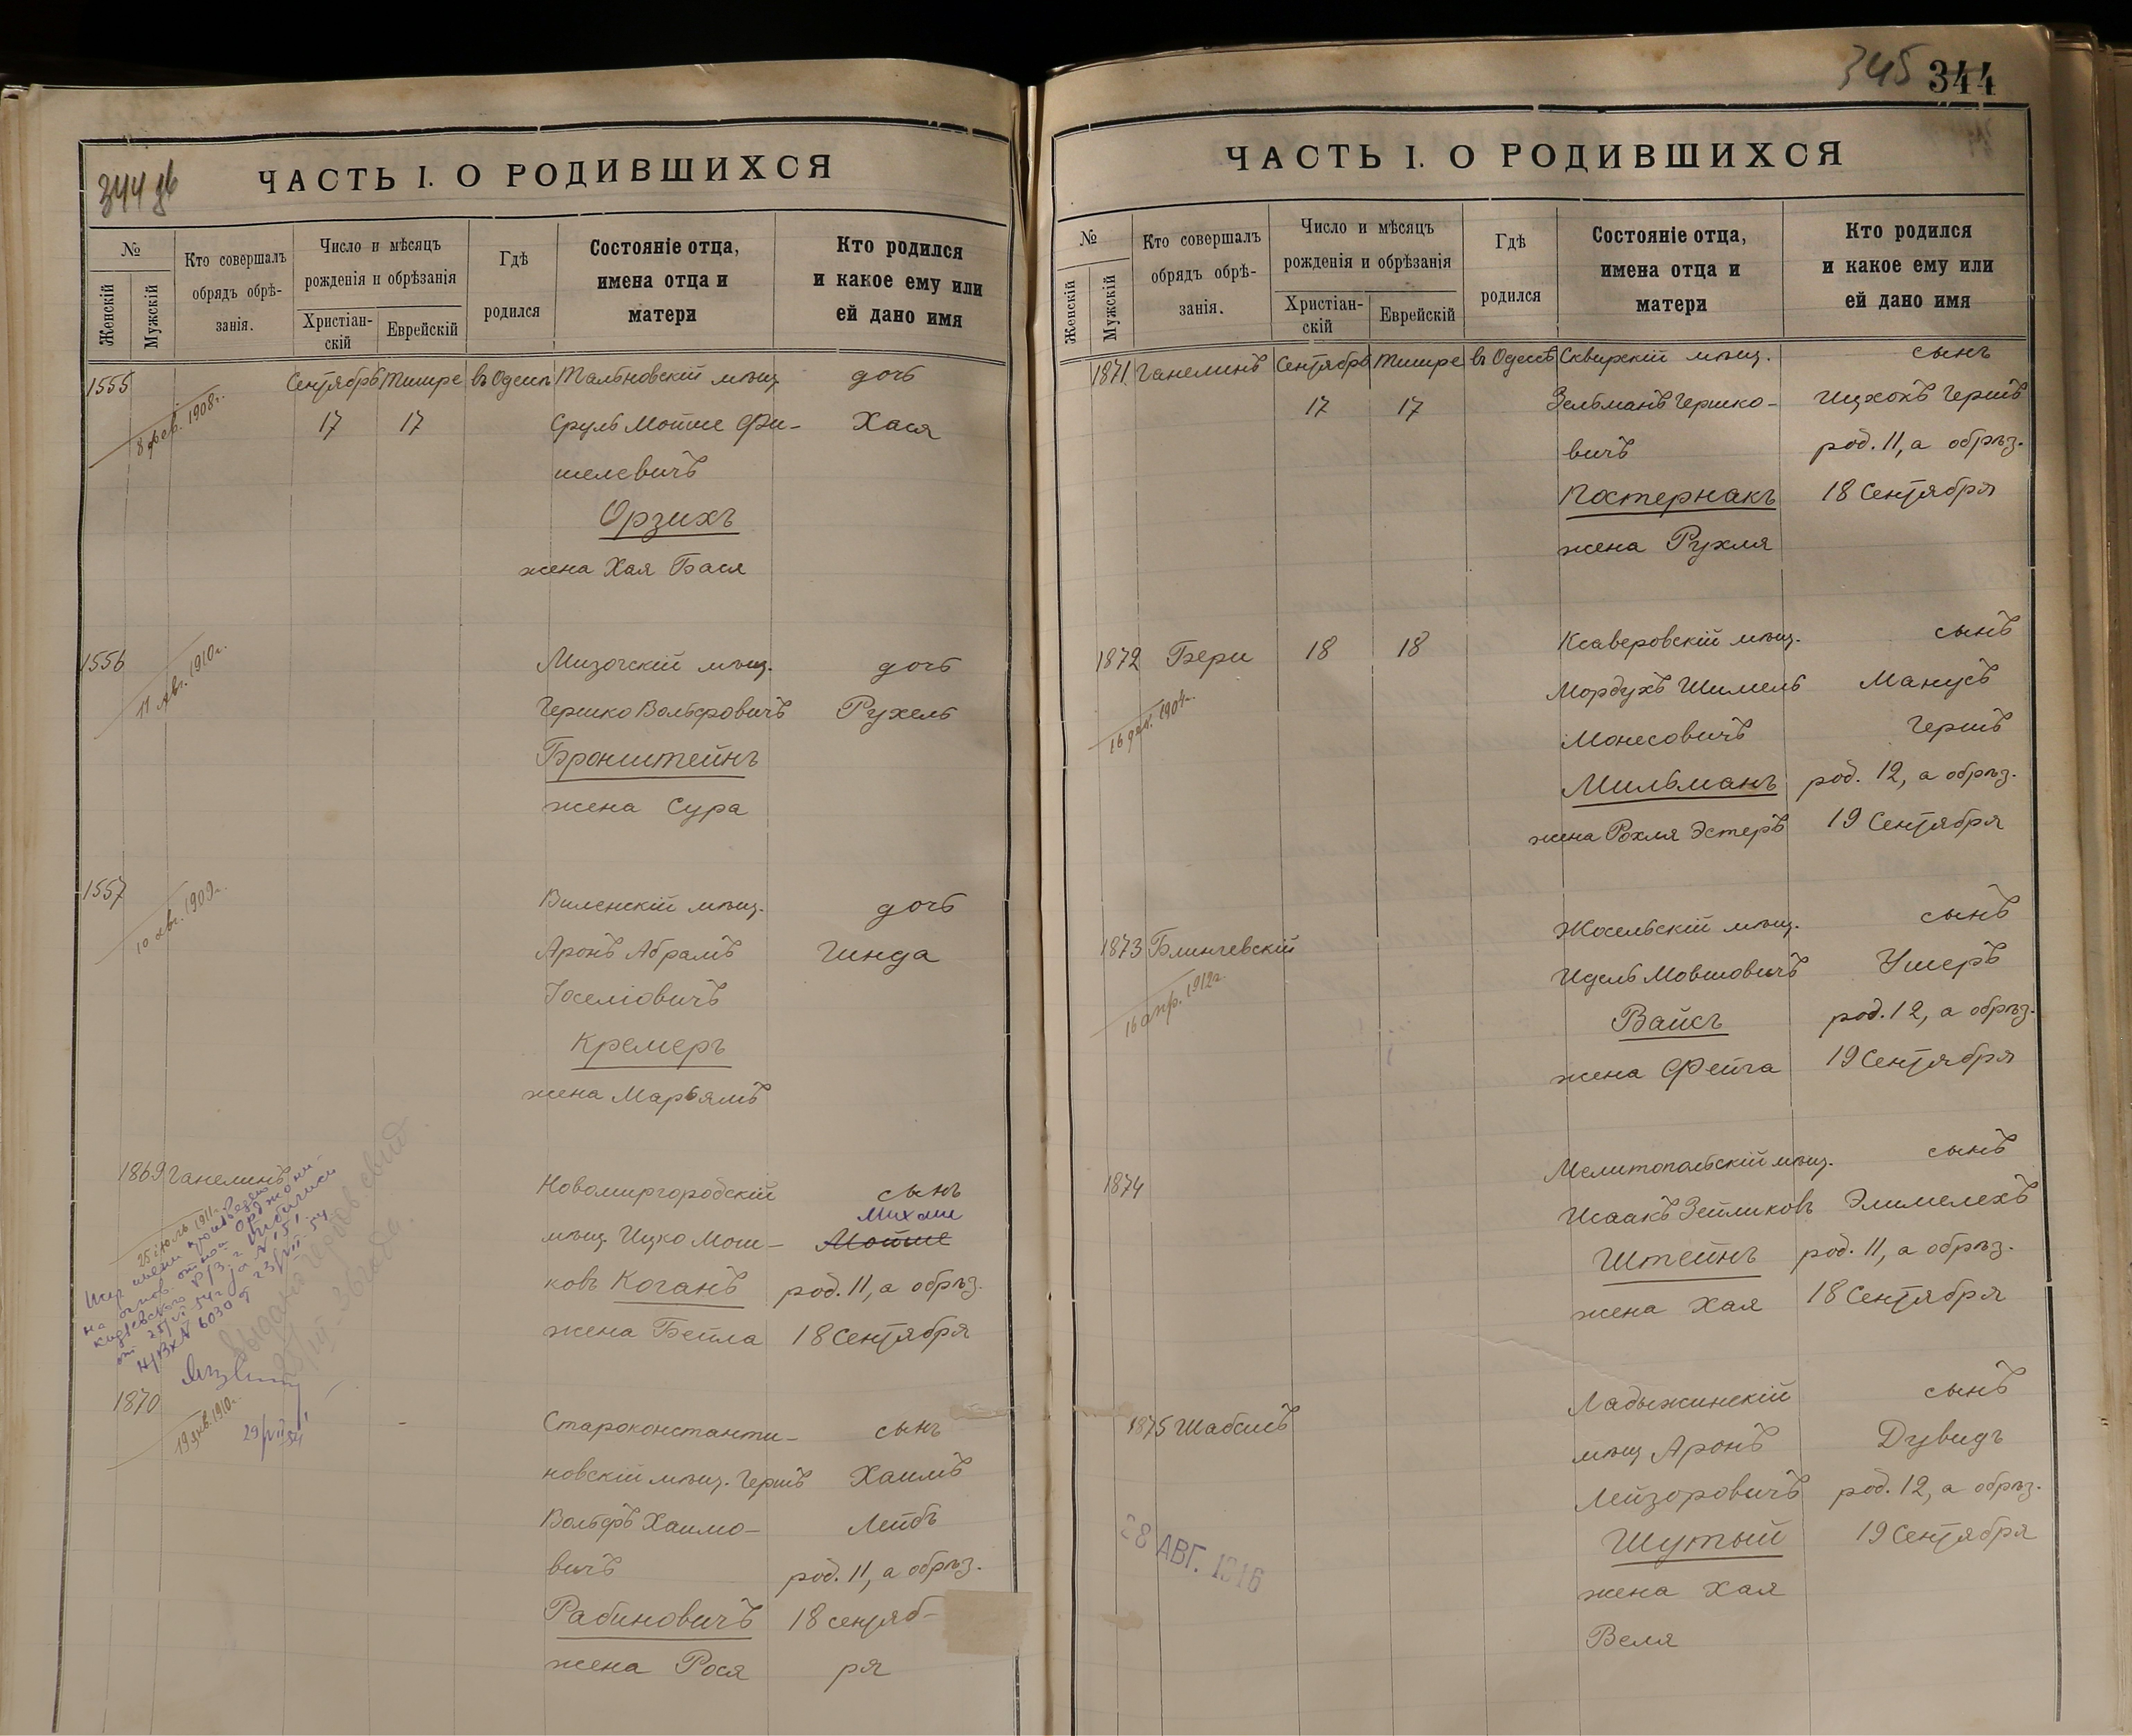 344 об
ЧАСТЬ I. О РОДИВШИХСЯ
№
Женскій
Мужскій
Кто совершалъ
обрядъ обрѣ-
занія.
Число и мѣсяцъ
рожденія и обрѣзанія
Христіан-
скій
Еврейскій
Гдѣ
родился
Состояніе отца,
имена отца и
матери
Кто родился
и какое ему или
ей дано имя
1555 Сентябрь Тишре въ Одессѣ Тальновскій мѣщ. дочь
8 фев. 1908г. 17 17 Сруль Мотше Фи- Хася
шелевичъ
Орзихъ
жена Хая Бася
1556 Мизочскій мѣщ. дочь
11 авг. 1910г. Гершко Вольфовичъ Рухель
Бронштейнъ
жена Сура
1557 Виленскій мѣщ. дочь
10 авг. 1909г. Аронъ Абрамъ Гинда
Іоселіовичъ
Кремеръ
жена Марьямъ
1869 Ганелинъ Новомиргородскій сынъ
Михаил
25 іюль 1911г. мѣщ. Ицко Мош- Мотше
ковъ Коганъ род. 11, а обрѣз.
жена Бейла 18 Сентября
на основ
25/VI-54г за № 151
Н/Вх № 6030 от 23/VII-54
29/VII 54
1870 Староконстанти- сынъ
19 янв. 1910г. новскій мѣщ. Гершъ Хаимъ
Вольфъ Хаимо- Лейбъ
вичъ род. 11, а обрѣз.
Рабиновичъ 18 сентяб-
жена Рося ря
345 344
ЧАСТЬ I. О РОДИВШИХСЯ
№
Женскій
Мужскій
Кто совершалъ
обрядъ обрѣ-
занія.
Число и мѣсяцъ
рожденія и обрѣзанія
Христіан-
скій
Еврейскій
Гдѣ
родился
Состояніе отца,
имена отца и
матери
Кто родился
и какое ему или
ей дано имя
1871 Ганелинъ Сентябрь Тишре въ Одессѣ Сквирскій мѣщ. сынъ
17 17 Зельманъ Гершко- Ицхокъ Гершъ
вичъ род. 11, а обрѣз.
Постернакъ 18 Сентября
жена Рухля
1872 Бери 18 18 Ксаверовскій мѣщ. сынъ
Мордухъ Шимель Манусъ
16 дек. 1904г. Монесовичъ Гершъ
Мильманъ род. 12, а обрѣз.
жена Рохля Эстеръ 19 Сентября
1873 Блинчевскій Жосельскій мѣщ. сынъ
16 апр. 1912г. Идель Мовшовичъ Ушеръ
Вайсъ род. 12, а обрѣз.
жена Фейга 19 Сентября
1874 Мелитопольскій мѣщ. сынъ
Исаакъ Зейликовъ Элимелехъ
Штейнъ род. 11, а обрѣз.
жена Хая 18 Сентября
1875 Шабсисъ Ладыжинскій сынъ
мѣщ Аронъ Дувидъ
Лейзоровичъ род. 12, а обрѣз.
28 АВГ. 1916 Шутый 19 Сентября
жена Хая
Веля